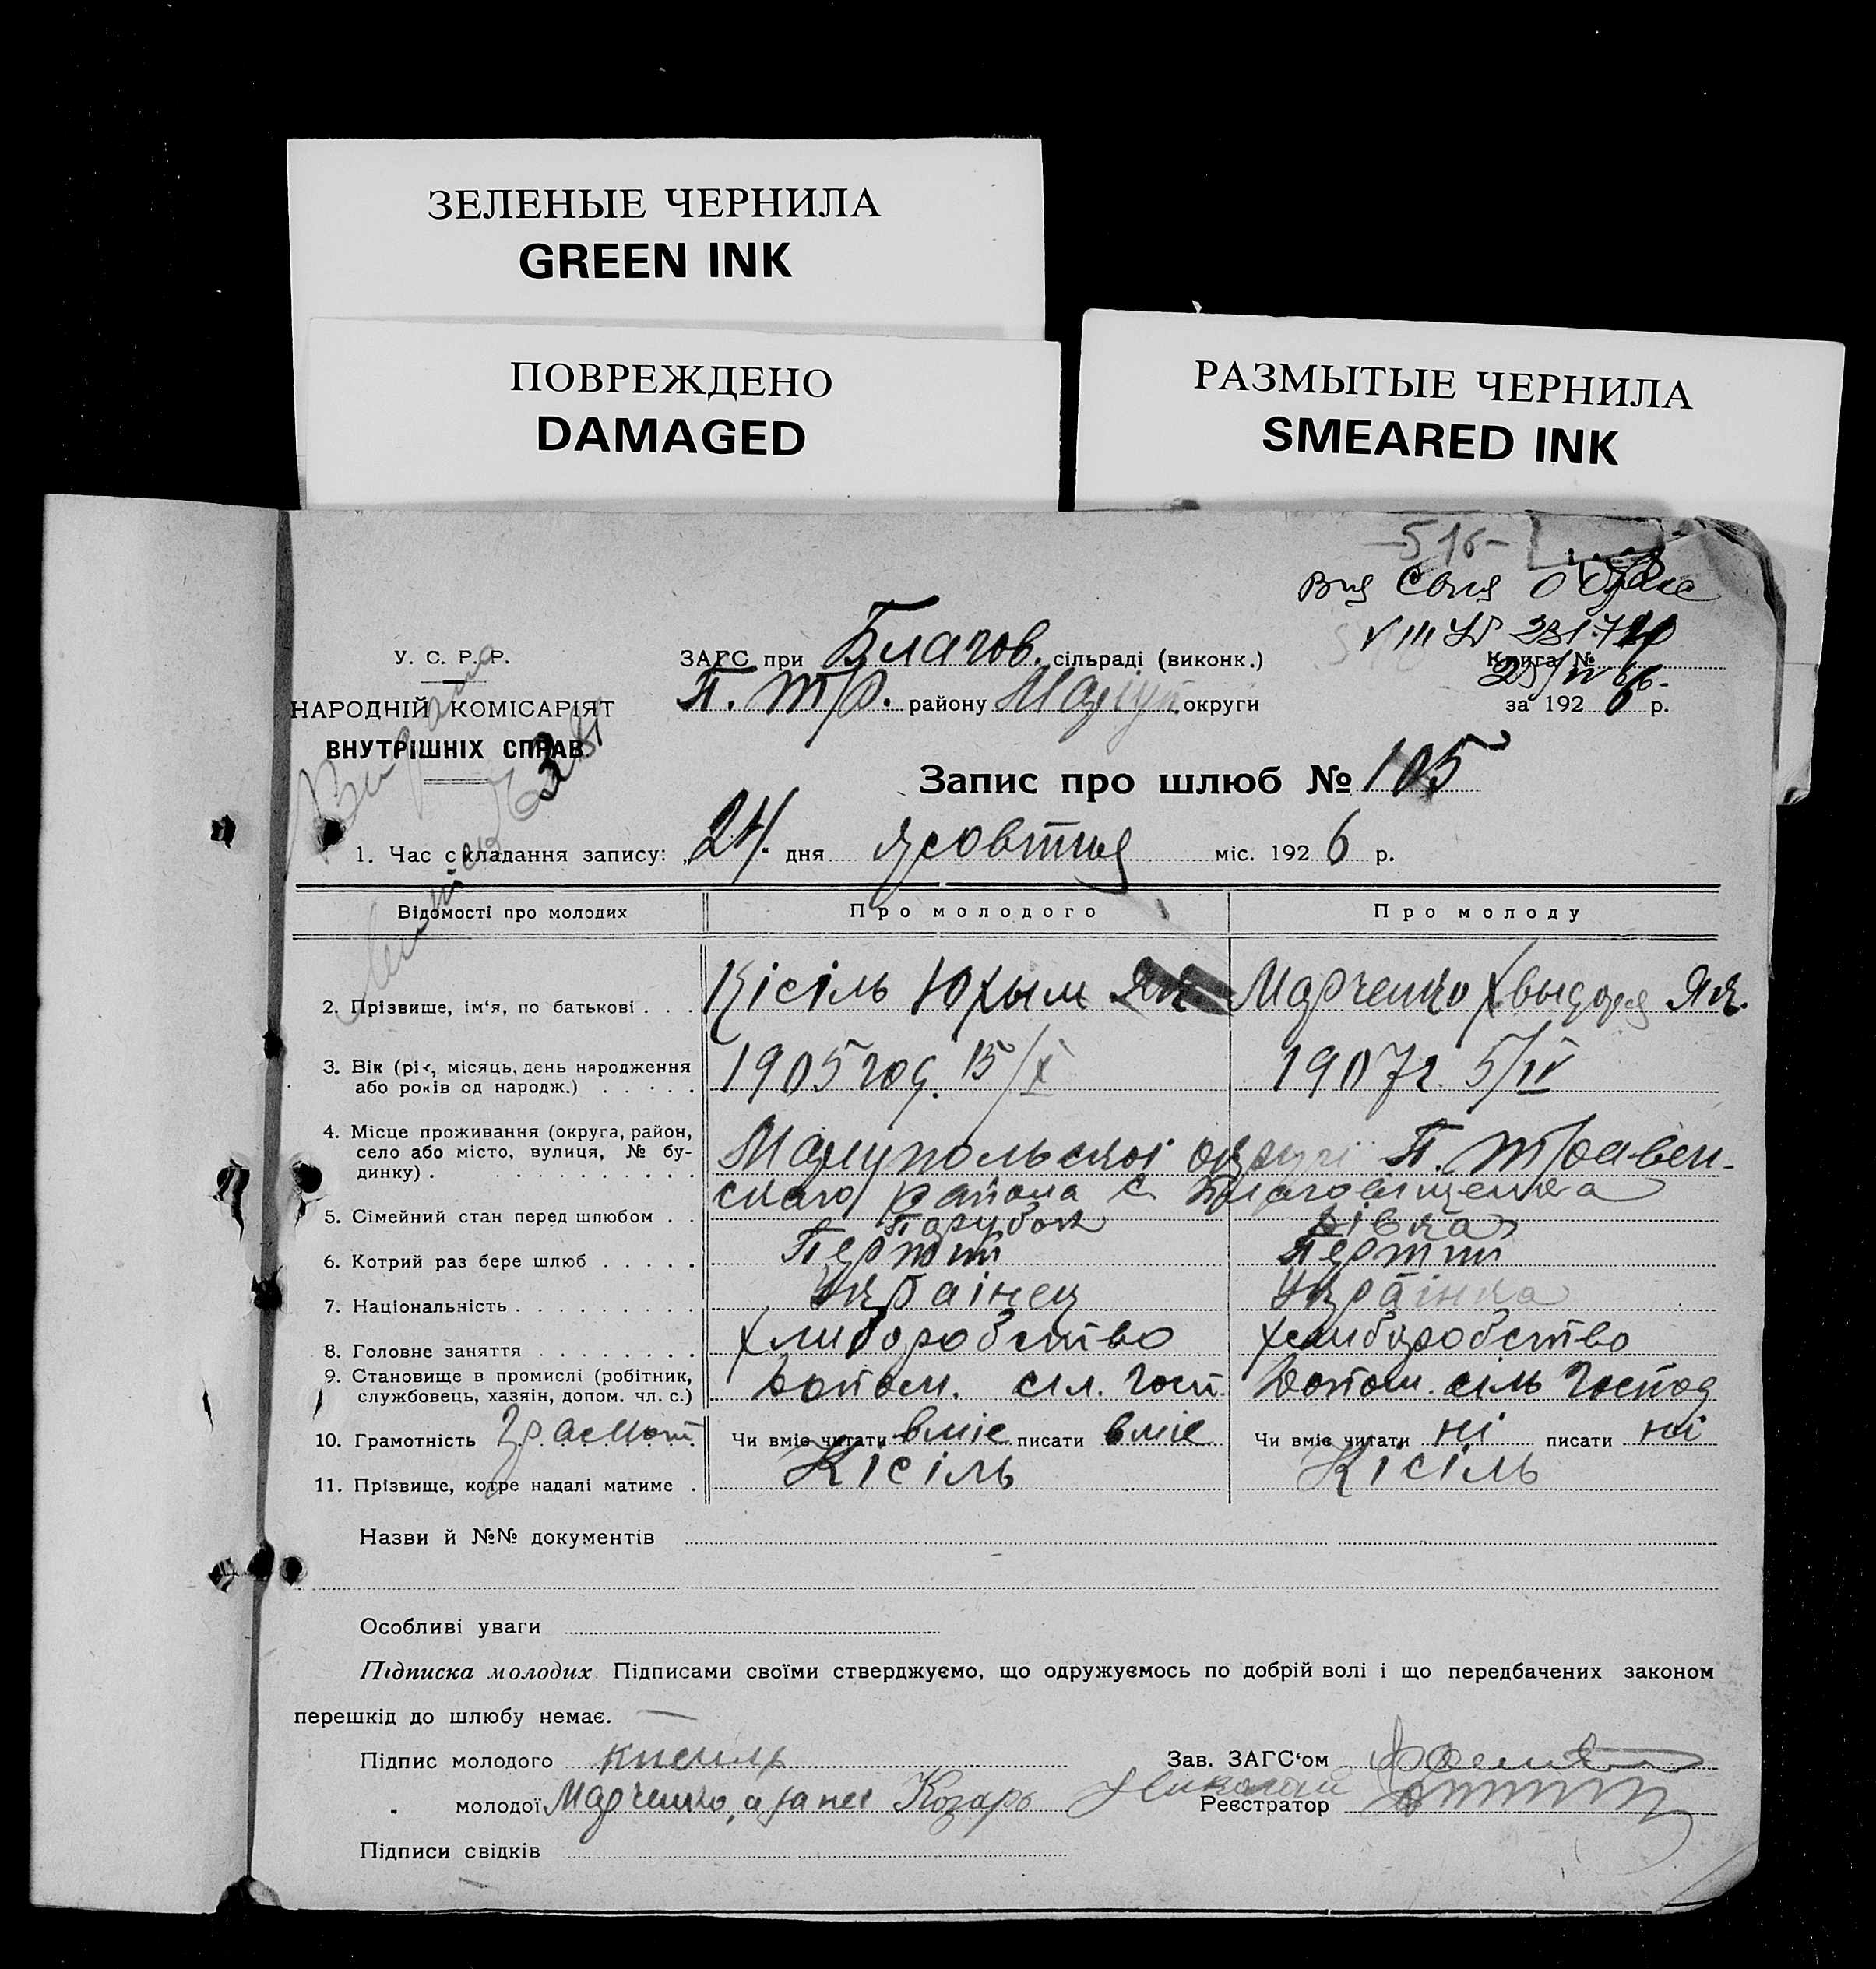 ЗЕЛЕНЫЕ ЧЕРНИЛА
GREEN INK
ПОВРЕЖДЕНО
DAMAGED
РАЗМЫТЫЕ ЧЕРНИЛА
SMEARED INK
-516-
У. С. Р. Р.
НАРОДНІЙ КОМІСАРІЯТ
ВНУТРІШНІХ СПРАВ
ЗАГС при Благов. сільраді (виконк.)
П. Тр. району Маріуп. округи
Книга №
за 1926 р.
Запис про шлюб № 105
1. Час складання запису: „24“ дня жовтня міс. 1926 р.
Відомості про молодих Про молодого Про молоду
2. Прізвище, ім‘я, по батькові . . . Кісіль Юхым Як Марченко Хвыдоря Як.
3. Вік (рік, місяць, день народження або років од народж.) . . . . . 1905 год. 15/X 1907 г. 5/IV
4. Місце проживання (округа, район, село або місто, вулиця, № будинку) . Мариупольскоі округі П. Травен-
скаго района с. Благовищенка
5. Сімейний стан перед шлюбом . . Парубок Дівка
6. Котрий раз бере шлюб . . . . . Перший Перший
7. Національність . . . . . . . . . Украінец Украінка
8. Головне заняття . . . . . . . . Хлиборобство Хлиборобство
9. Становище в промислі (робітник, службовець, хазяін, допом. чл. с.) Допом. сіл. Госп. Допом. сіль Господ
10. Грамотність Грамот Чи вміє читати вміе писати вміе Чи вміє читати ні писати ні
11. Прізвище, котре надалі матиме . Кісіль Кісіль
Назви й №№ документів
Особливі уваги
Підписка молодих. Підписами своїми стверджуємо, що одружуємось по добрій волі і що передбачених законом
перешкід до шлюбу немає.
Підпис молодого Кисиль Зав. ЗАГС‘ом
„ молодої Марченко, а за неі Козарь Николай Реєстратор
Підписи свідків